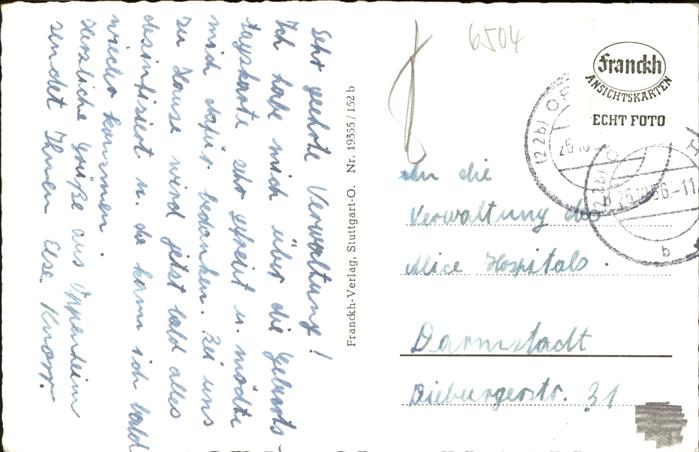 Sehr geehrte Verwaltung!
Ich habe mich über die Geburts-
tagskarte sehr gefreut u. möchte
mich dafür bedanken. Bei uns
zu Hause wird jetzt bald alles
desinfiziert u. da kann ich bald
wieder kommen.
Herzliche Grüße aus Oppenheim
sendet Ihnen Else Knorr.
Franckh-Verlag, Stuttgart-O. Nr. 19355/152 b
6504
Franckh
ANSICHTSKARTEN
ECHT FOTO
(22b)
(22b)
26.10.56.-11
b
An die
Verwaltung des
Alice Hospitals.
Darmstadt
Dieburgerstr. 31